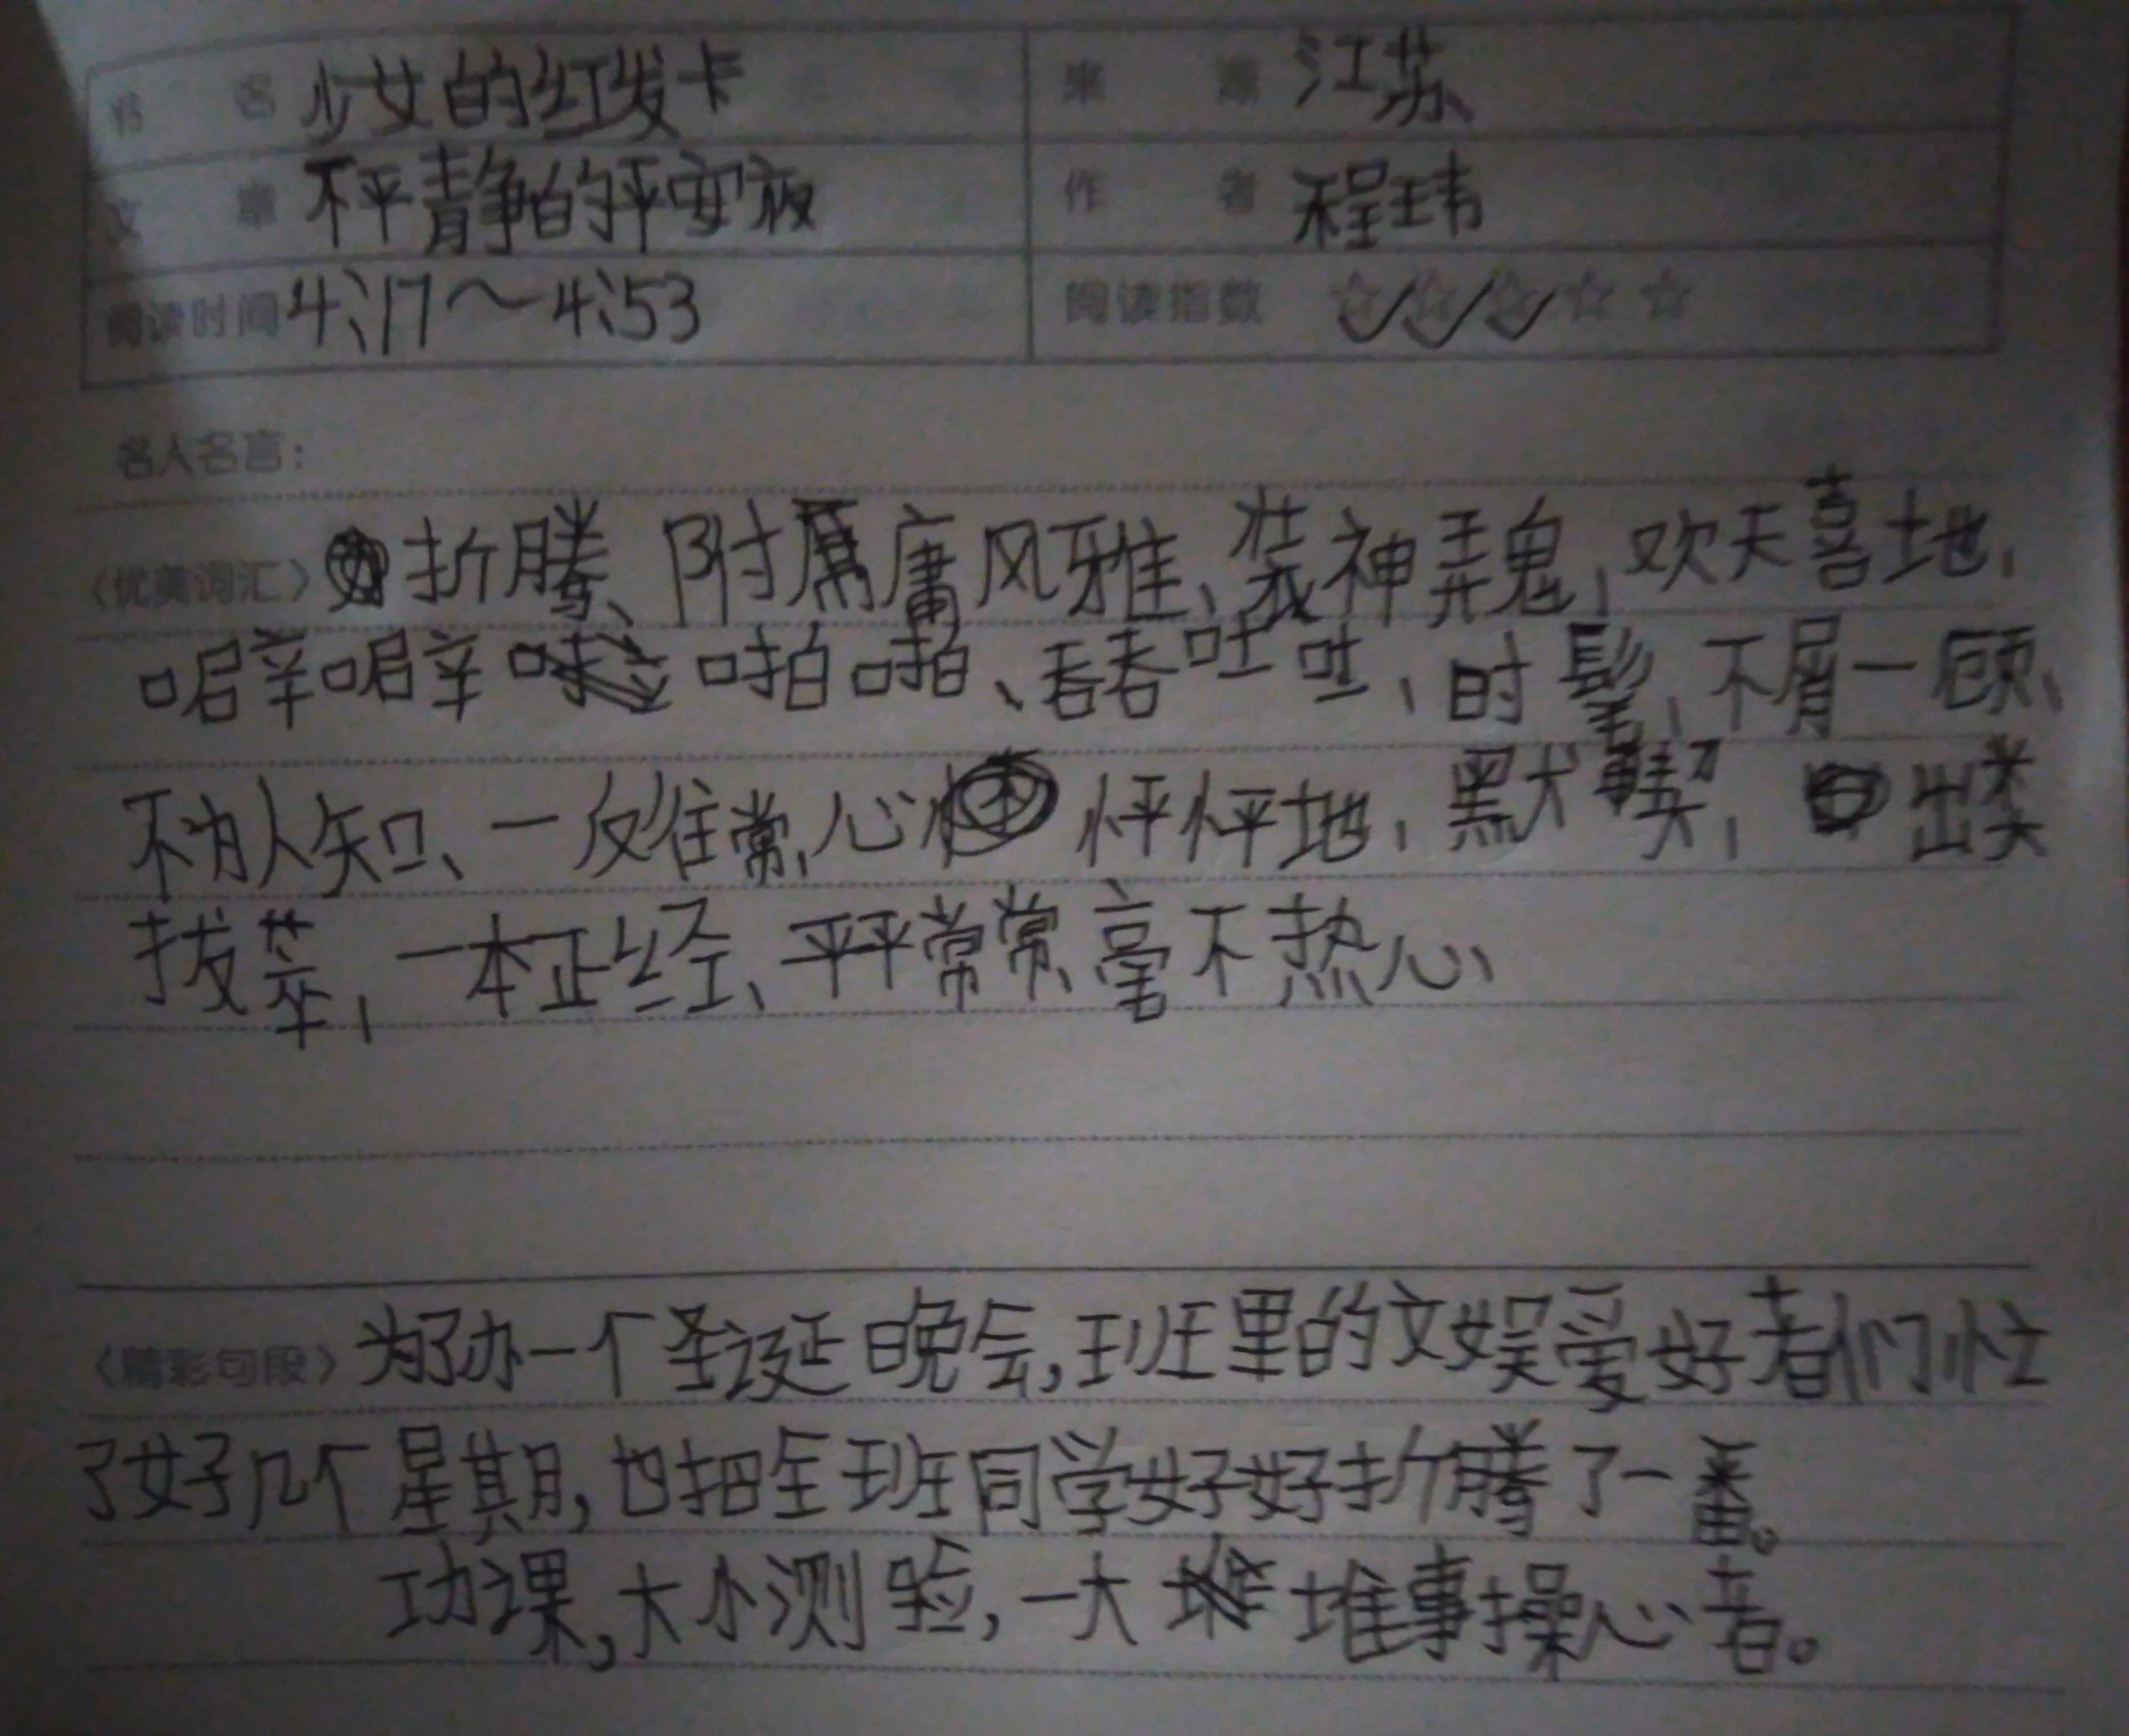 书名 少女的红发卡 来源 江苏
文章 不平静的平安夜 作者 程玮
阅读时间 4:17～4:53 阅读指数 ☆☆☆☆☆
名人名言：
〈优美词汇〉折腾、附庸风雅、装神弄鬼、欢天喜地、
噼噼啪啪、吞吞吐吐、时髦、不屑一顾、
不为人知、一反往常、心怦怦地、默契、出类
拔萃、一本正经、平平常常、毫不热心、
〈精彩句段〉为了办一个圣诞晚会,班里的文娱爱好者们忙
了好几个星期,也把全班同学好好折腾了一番。
功课,大小测验,一大堆事操心着。